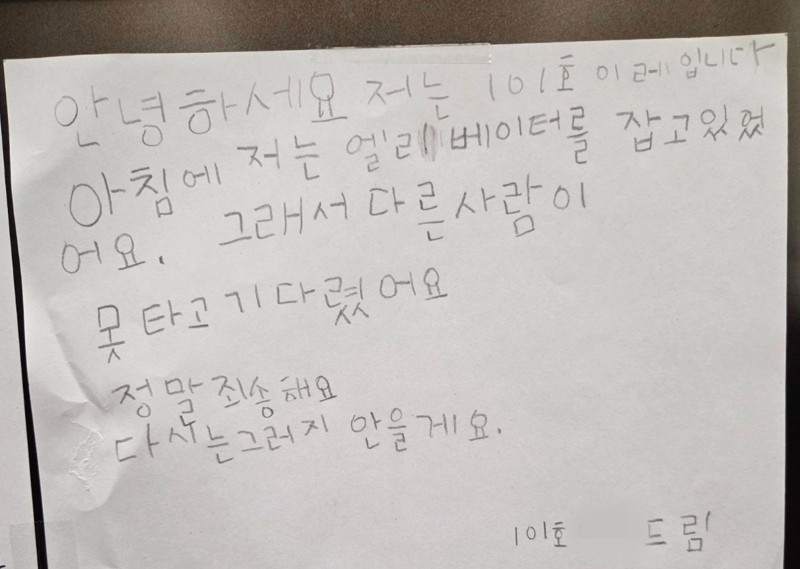 안녕하세요 저는 101호 이레입니다
아침에 저는 엘리베이터를 잡고있었
어요. 그래서 다른사람이
못타고 기다렸어요
정말죄송해요
다시는그러지 안을게요.
101호 드림